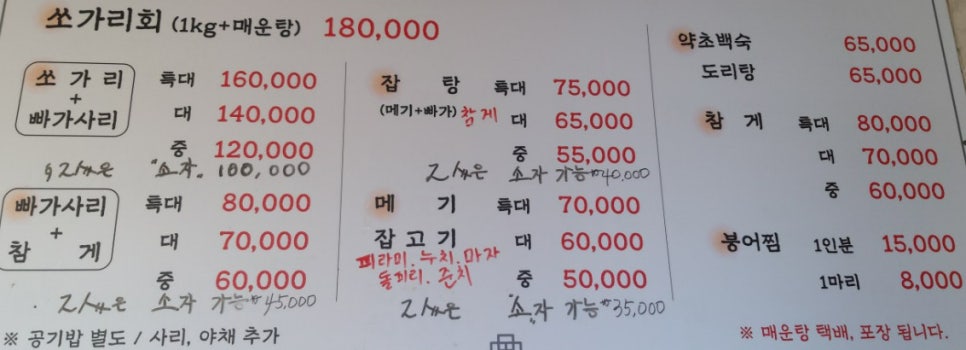 쏘가리회 (1kg+매운탕) 180,000
쏘가리
+
빠가사리
특대 160,000
대 140,000
중 120,000
2人분은 "소자. 100,000
빠가사리
+
참게
특대 80,000
대 70,000
중 60,000
2人분은 소자 가능 ₩45,000
※ 공기밥 별도 / 사리, 야채 추가
잡탕 특대 75,000
(메기+빠가) 참게 대 65,000
중 55,000
2人분은 소자 가능 ₩40,000
메기 특대 70,000
잡고기 대 60,000
피라미. 누치. 마자
돌끼리. 준치 중 50,000
2人분은 "소" 자 가능 ₩35,000
약초백숙 65,000
도리탕 65,000
참게 특대 80,000
대 70,000
중 60,000
붕어찜 1인분 15,000
1마리 8,000
※ 매운탕 택배, 포장 됩니다.